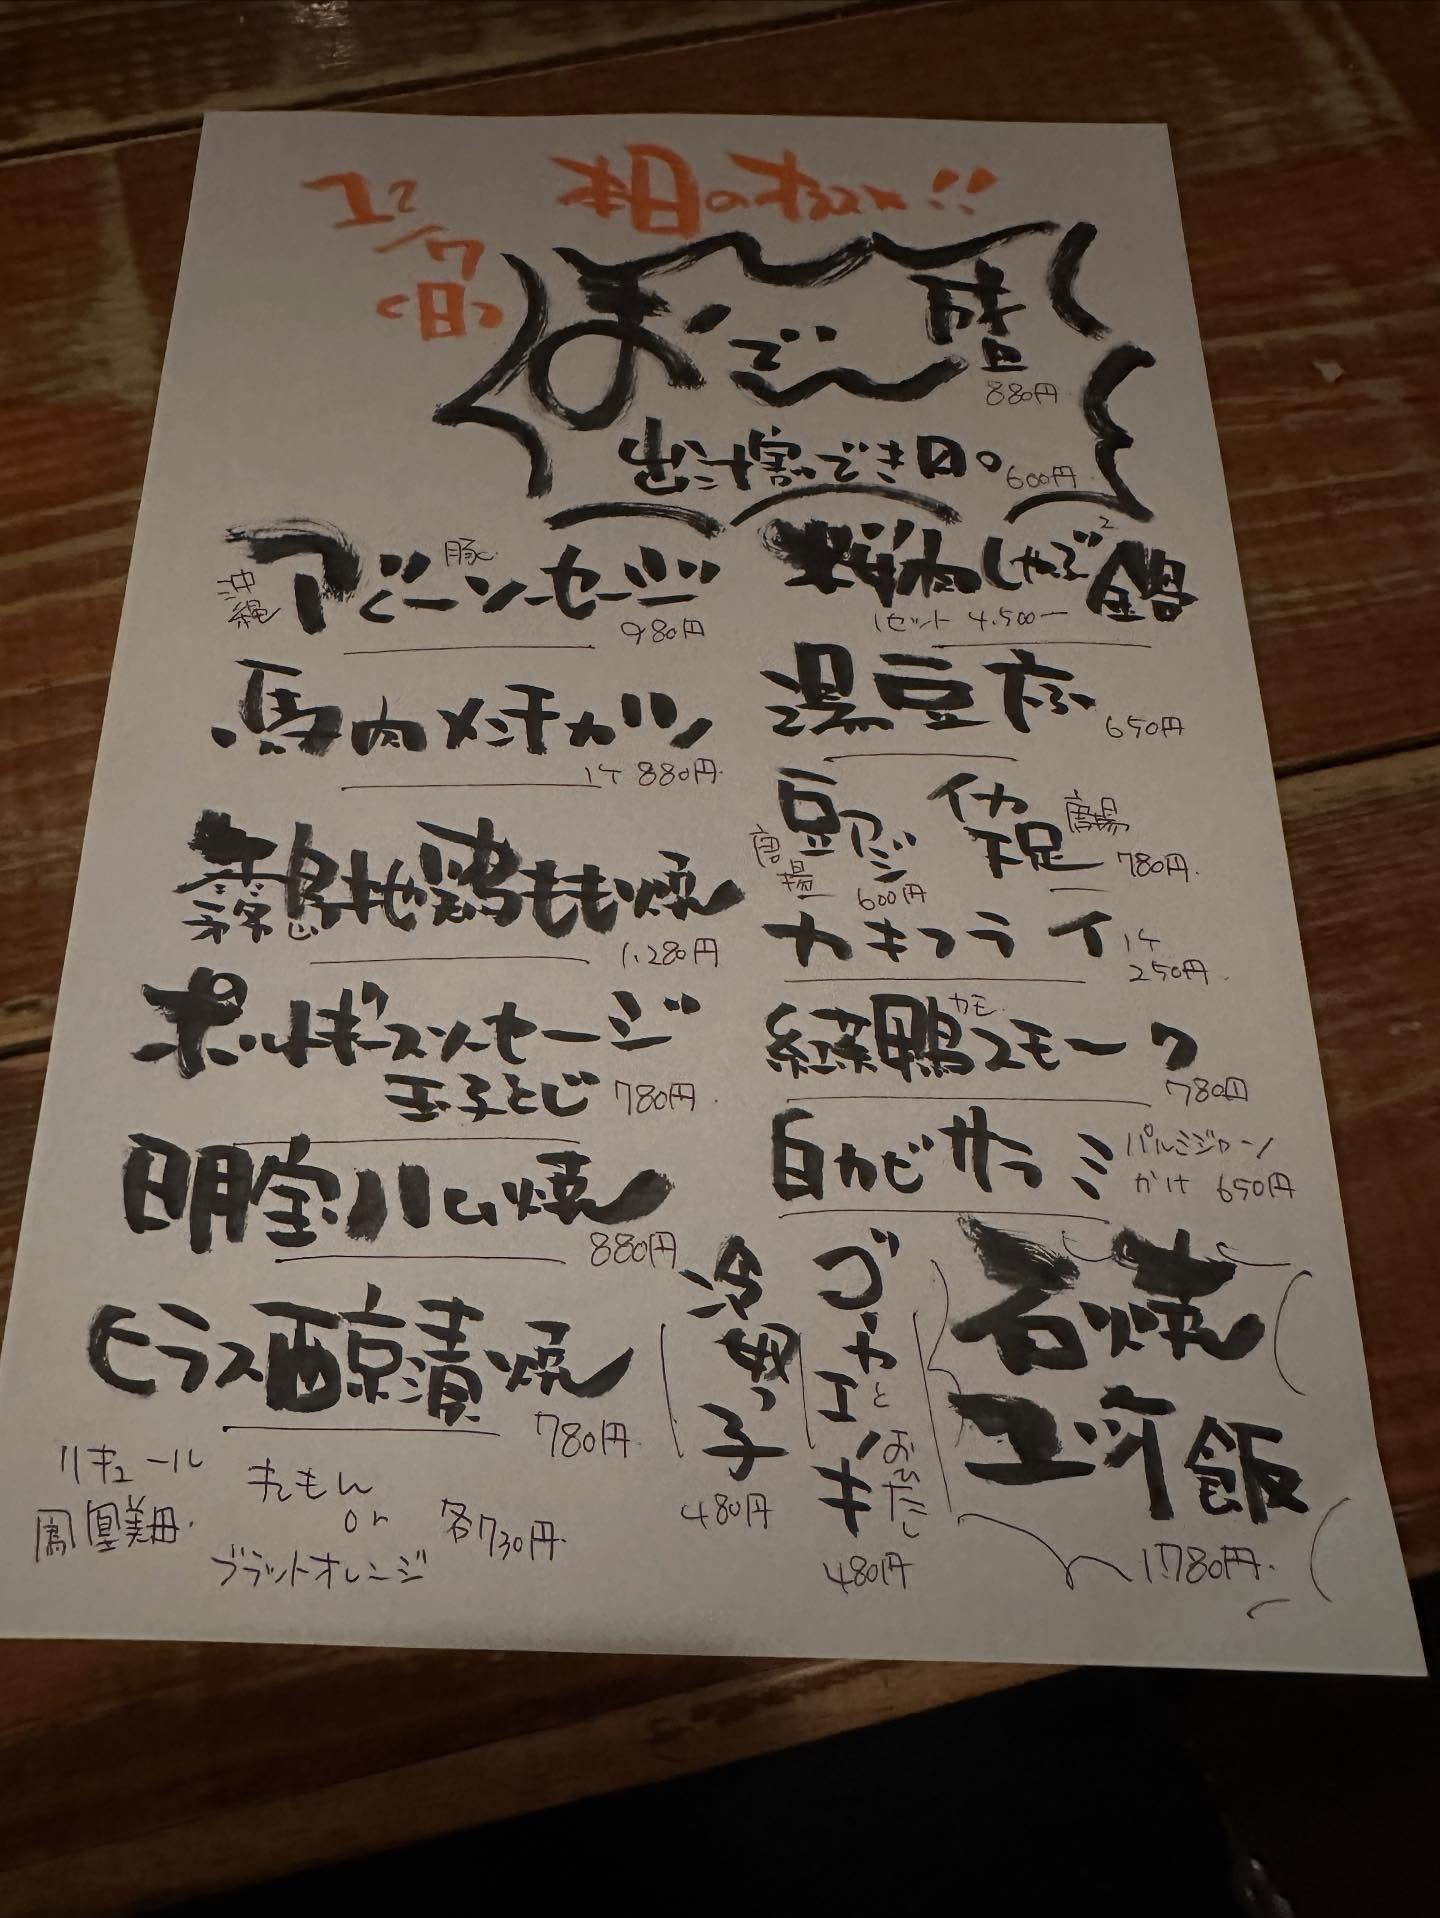 12/7
(日)
本日のオススメ!!
おでん 盛
880円
出汁割できます。600円
沖縄 アグーソーセージ 豚
980円
馬肉メンチカツ
1ケ 880円
霧島地鶏もも焼
1,280円
ポルトギースソーセージ
玉子とじ 780円
明宝ハム焼
880円
ヒラス西京漬焼
780円
リキュール
鳳凰美田
れもん
or
ブラッドオレンジ
各730円
桜肉しゃぶ2鍋
1セット 4,500ー
湯豆腐
650円
豆アジ 唐揚
600円
イカ下足 唐揚
780円
カキフライ 1ケ
250円
紅茶鴨スモーク カモ
780円
白カビサラミ パルミジャーノ
かけ 650円
冷奴っ子
480円
ゴーヤとエノキ おひたし
480円
石焼
ユッケ飯
1,780円